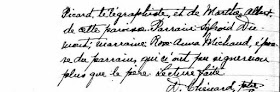 Picard, télégraphiste, et de Martha Albert
de cette paroisse. Parrain Sylvio Du-
mont; marraine Rose Anna Michaud, épou-
se du parrain, qui ainsi ont pu signer non
plus que le père. Lecture faite
D. Chénard, ptre